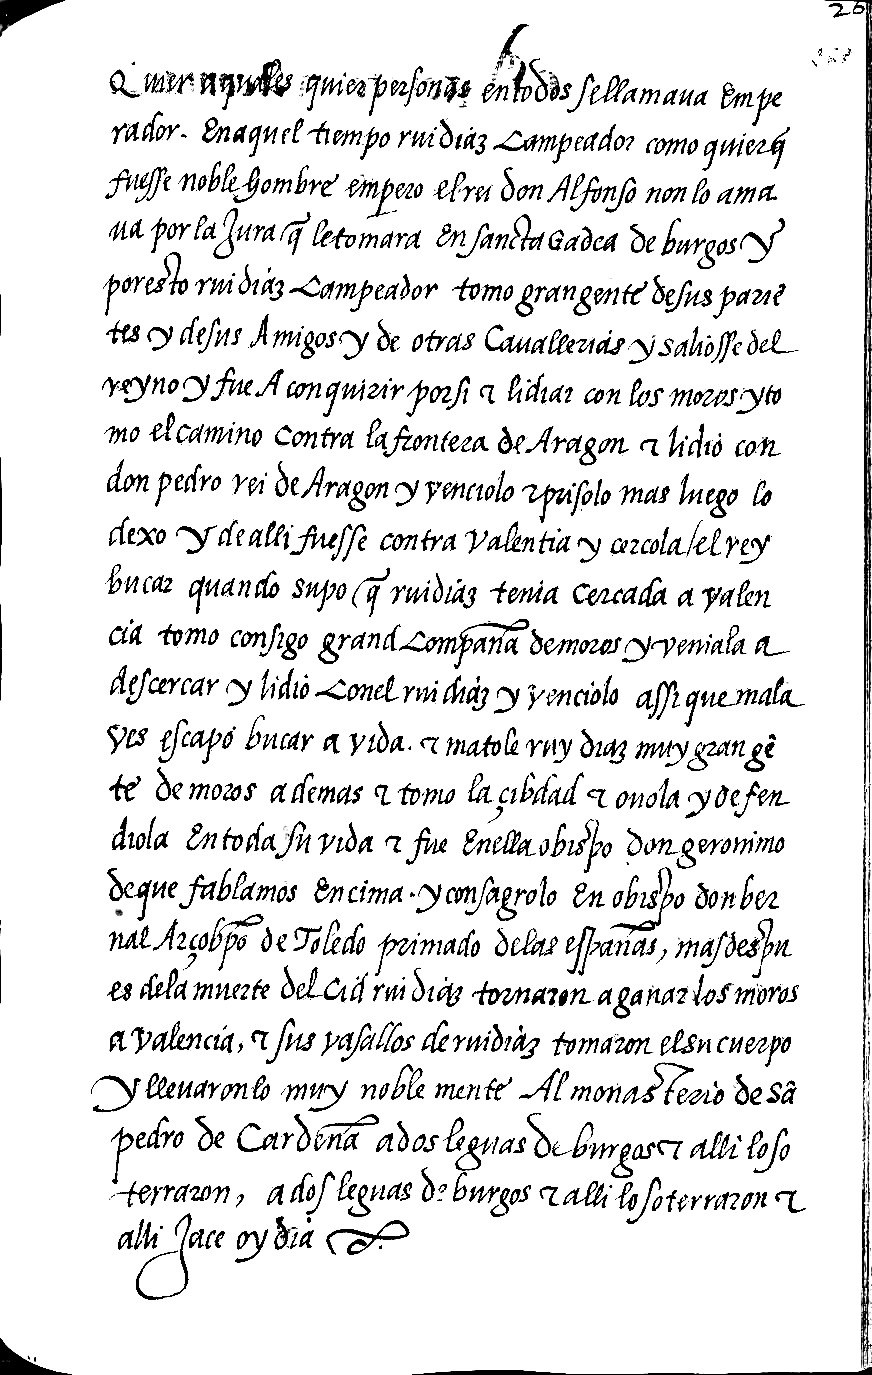 26
Quier a quales quier personas en todos se llamaua Empe
rador. En aquel tiempo rui diaz Campeador como quier q̃
fuesse noble hombre empero el rei don Alfonso non lo ama
ua por la Jura q̃ le tomara En sancta Gadea de burgos Y
por esto rui diaz Campeador tomo gran gente de sus pariẽ
tes y de sus Amigos y de otras Cauallerias y saliosse del
reyno y fue A conquirir por si ⁊ lidiar con los moros y to
mo el camino contra la frontera de Aragon ⁊ lidió con
don pedro rei de Aragon y venciolo ⁊ prisolo mas luego lo
dexo y de alli fuesse contra Valentia y cercola / el rey
bucar quando supo q̃ rui diaz tenia cercada a valen
cia tomo consigo grand Compaña de moros y veniala a
descercar y lidió Con el rui diaz y venciolo assi que mala
ves escapó bucar a vida. ⁊ matole ruy diaz muy gran gẽ
te de moros ademas ⁊ tomo la çibdad ⁊ ouola y defen
diola En toda su vida ⁊ fue En ella obispo don geronimo
de que fablamos En cima. y consagrolo En obispo don ber
nal Arçobpõ de Toledo primado de las españas, mas despu
es de la muerte del Cid rui diaz tornaron a ganar los moros
a Valencia, ⁊ sus vasallos de rui diaz tomaron el su cuerpo
y lleuaronlo muy noble mente Al monasterio de Sã
pedro de Cardeña a dos leguas de burgos ⁊ alli lo so
terraron, a dos leguas de burgos ⁊ alli lo soterraron ⁊
alli Jace oy dia